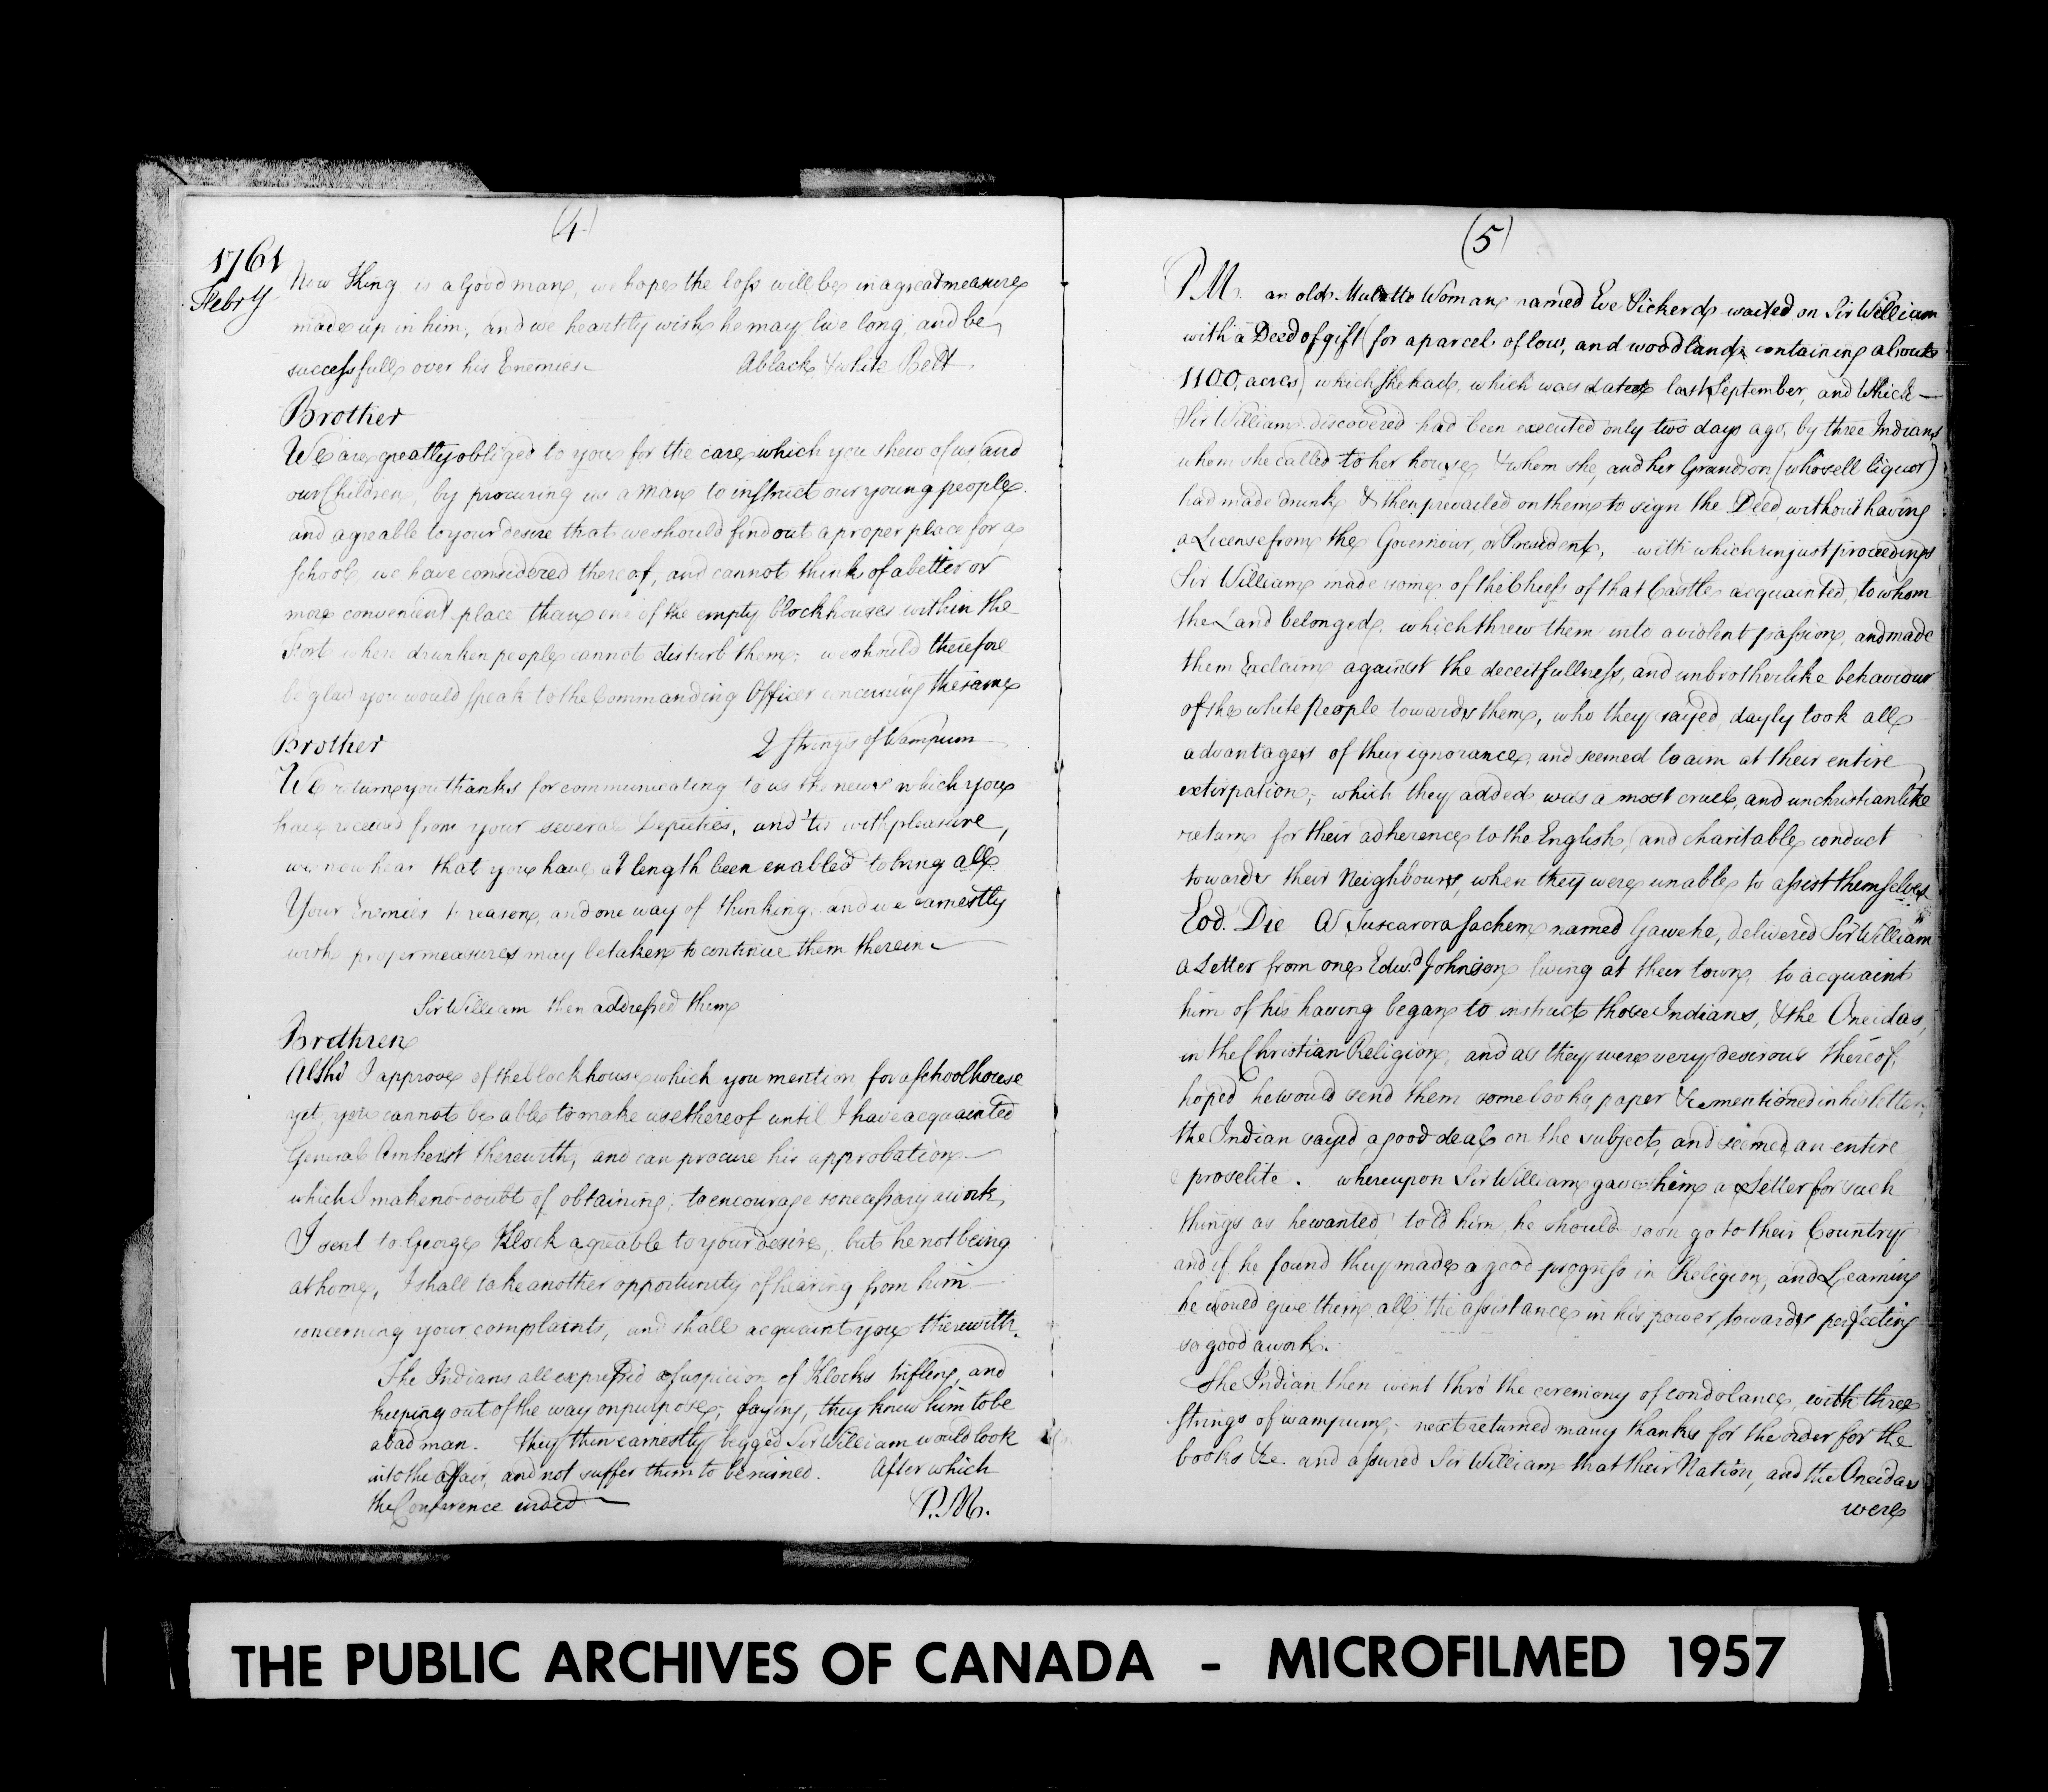 (4)
1761
Febry
New King is a Good man, we hope the loss will be in a great measure
made up in him, and we heartily wish he may live long, and be
successfull over his Enemies
A black & white Belt
Brother
We are greatly obliged to you for the care which you shew of us, and
our Children, by procuring us a Man to instruct our young people.
and agreable to your desire that we should find out a proper place for a
School, we have considered thereof, and cannot think of a better or
more convenient place than one of the empty blockhouses within the
Fort where drunken people cannot disturb them; we should therefore
be glad you would speak to the Commanding Officer concerning the same
2 Strings of Wampum
Brother
We return you thanks for communicating to us the news which you
have received from your several Deputies, and 'tis with pleasure,
we now hear that you have at length been enabled to bring all
Your Enemies to reason, and one way of thinking, and we earnestly
wish proper measures may be taken to continue them therein
Sir William then addressed them
Brethren
Altho' I approve of the blockhouse which you mention for a Schoolhouse
yet, you cannot be able to make use thereof until I have acquainted
General Amherst therewith, and can procure his approbation
which I make no doubt of obtaining; to encourage so necessary a work,
I sent to George Klock agreable to your desire, but he not being
at home, I shall take another opportunity of hearing from him
concerning your complaints, and shall acquaint you therewith.
The Indians all expressed a suspicion of Klocks trifling, and
keeping out of the way on purpose; saying, they knew him to be
a bad man. they then earnestly begged Sir William would look
into the affair, and not suffer them to be ruined. After which
the Conference ended
P.M.
(5)
P.M. an old Mulatto Woman named Eve Pickerd waited on Sir William
with a Deed of gift (for a parcel of low, and woodland, containing about
1100, acres) which she had, which was dated last September, and which
Sir William discovered had been executed only two days ago, by three Indians
whom she called to her house, & whom she, and her Grandson (who sell liquor)
had made drunk & then prevailed on them to sign the Deed, without having
a License from the Governour, or President, with which unjust proceedings
Sir William made some of the Chiefs of that Castle acquainted, to whom
the Land belonged. which threw them into a violent passion, and made
them Exclaim against the deceitfullness, and unbrotherlike behaviour
of the white People towards them, who they sayed, dayly took all
advantages of their ignorance, and seemed to aim at their entire
extirpation; which they added was a most cruel, and unchristianlike
return for their adherence to the English, and charitable conduct
towards their Neighbours, when they were unable to assist themselves
Eod. Die A Tuscarora Sachem named Gawehe, delivered Sir William
a Letter from one Edwd. Johnson living at their town, to acquaint
him of his having began to instruct those Indians, & the Oneidas,
in the Christian Religion, and as they were very desirous thereof,
hoped he would send them some books, paper &c mentioned in his letter,
the Indian sayed a good deal on the subject, and seemed an entire
proselite. whereupon Sir William gave him a Letter for such
things as he wanted, told him, he should soon go to their Country
and if he found they made a good progress in Religion, and Learning
he would give them all the assistance in his power towards perfecting
so good a work.
The Indian then went thro' the ceremony of condolance, with three
strings of wampum; next returned many thanks for the order for the
books &c. and assured Sir William that their Nation, and the Oneidas
were
THE PUBLIC ARCHIVES OF CANADA - MICROFILMED 1957